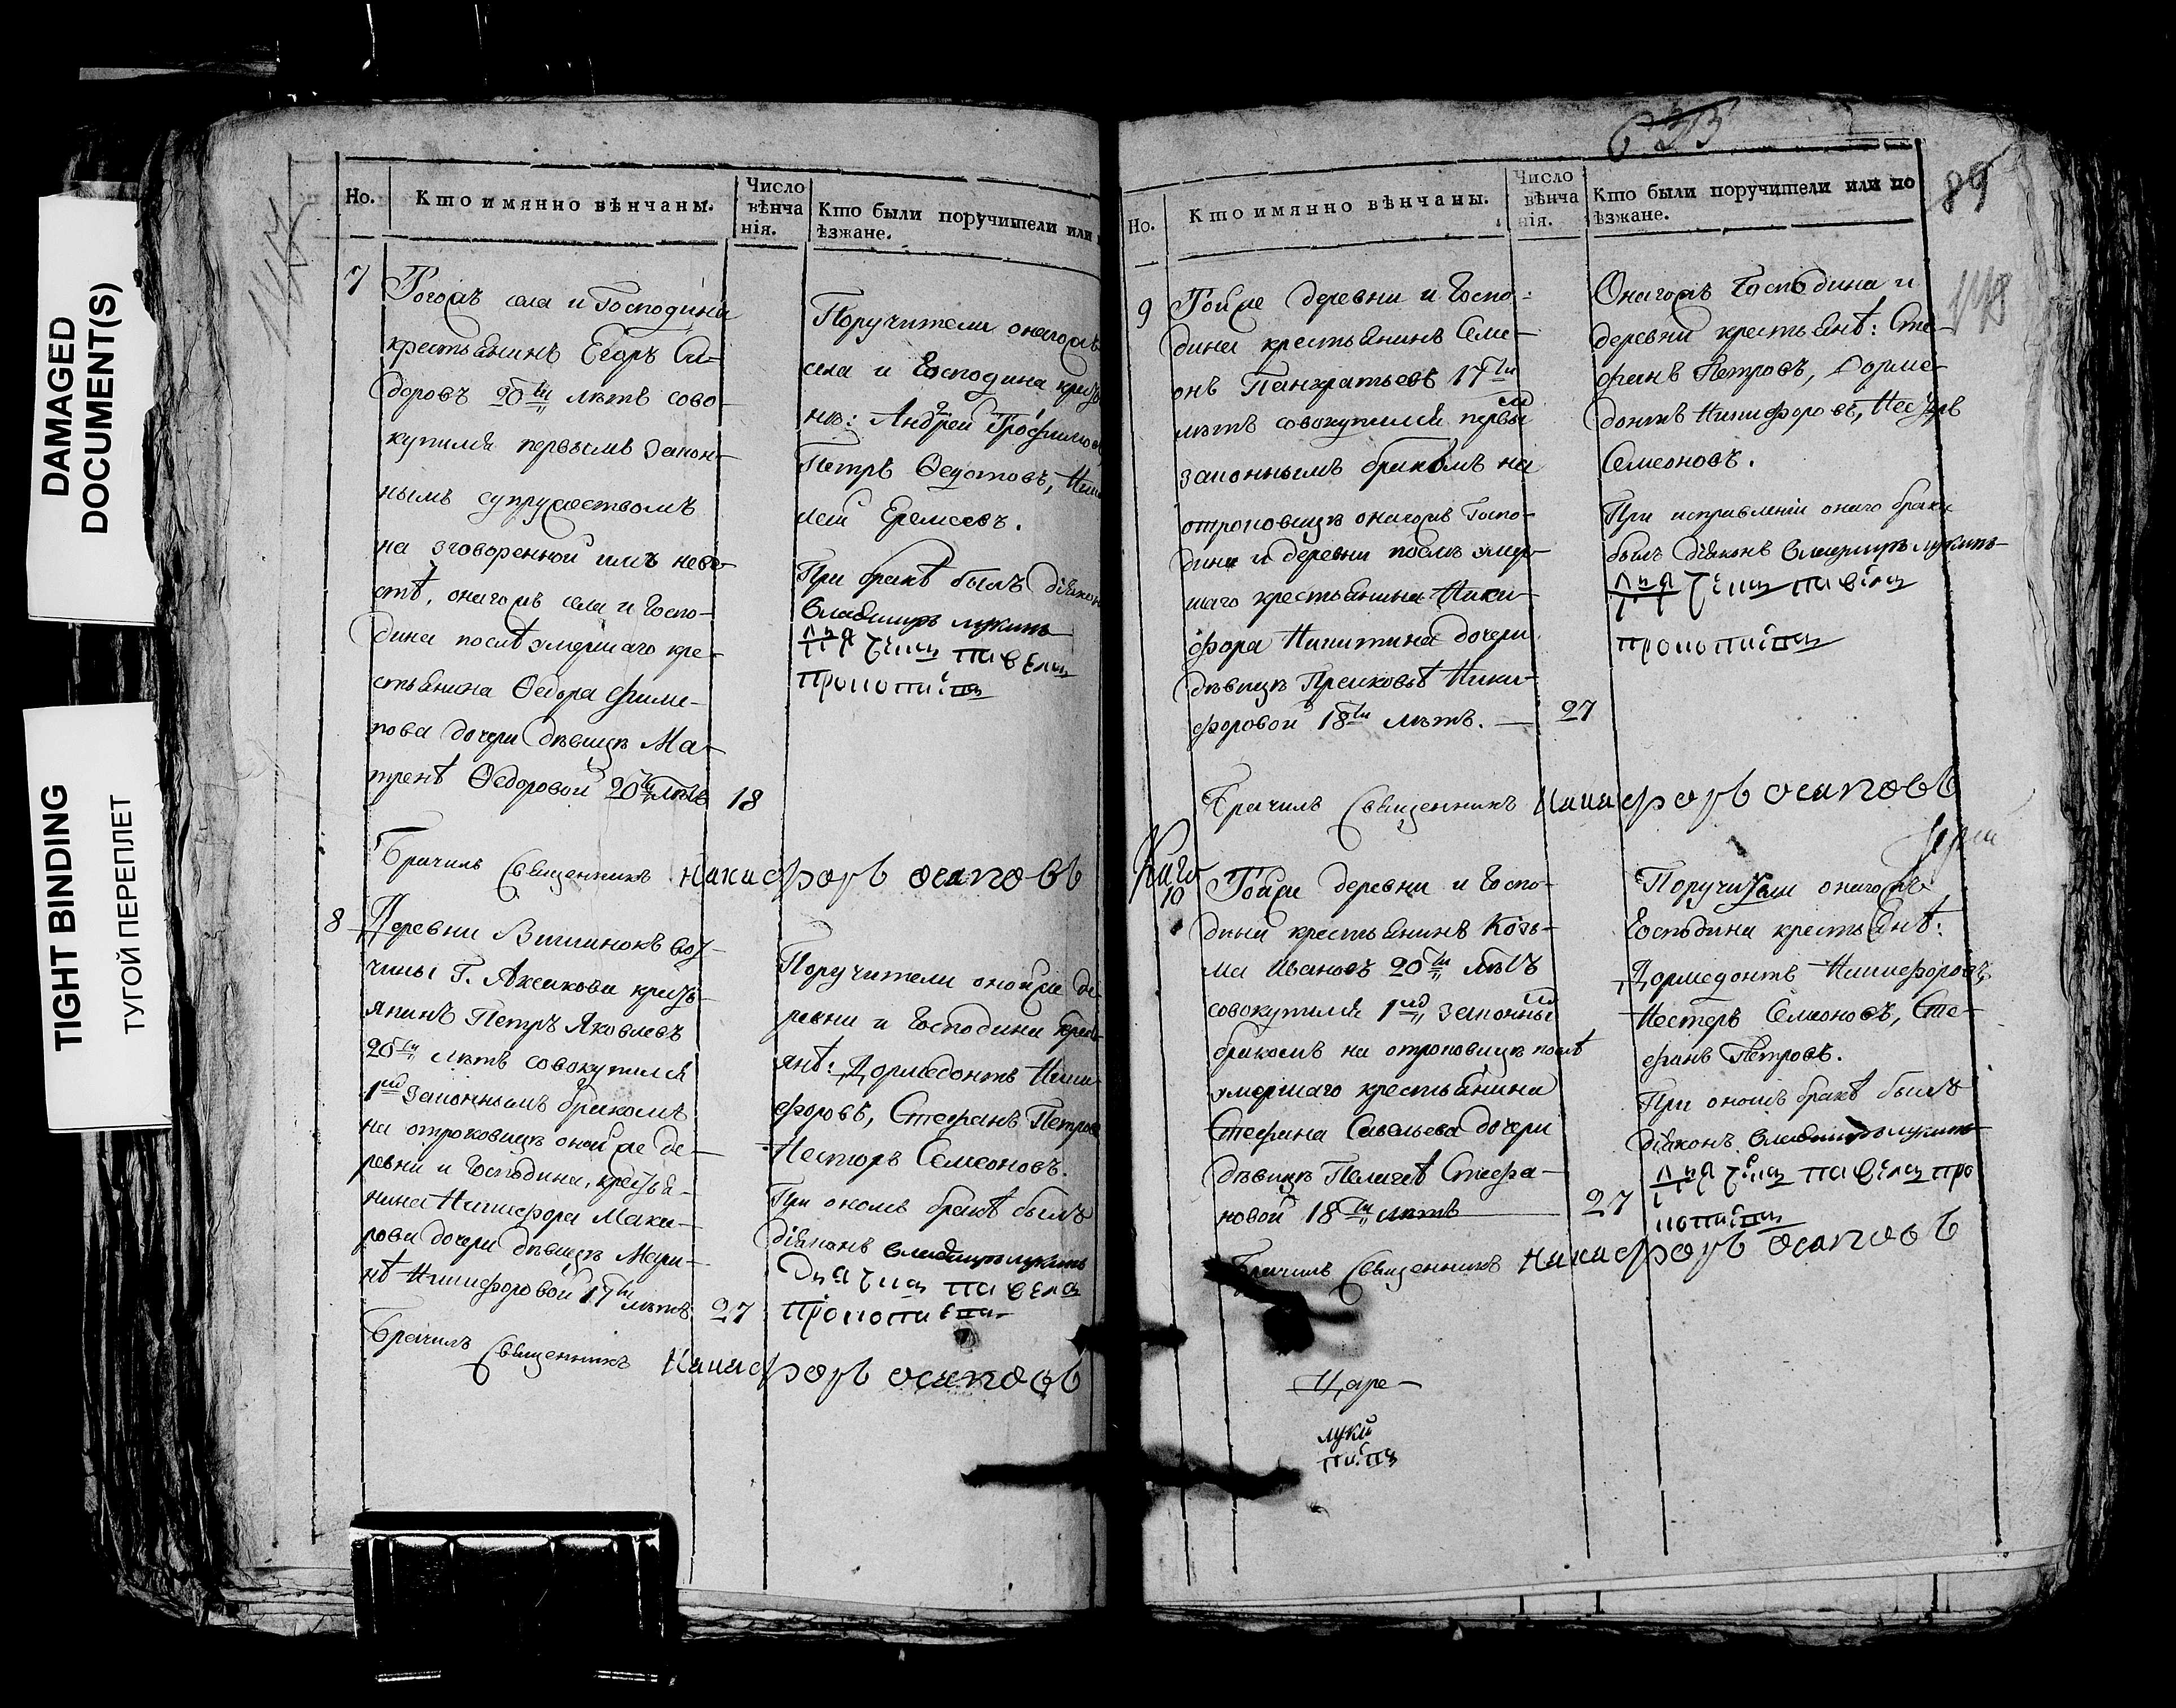 DAMAGED
DOCUMENT(S)
TIGHT BINDING
ТУГОЙ ПЕРЕПЛЕТ
Но.
Кто имянно вѣнчаны.
Число
вѣнча
нія.
Кто были поручители или
ѣзжане.
7
Тогожъ села и Господина
крестьянинъ Егоръ Си-
доровъ 20ти лѣтъ сово-
купился первымъ закон-
нымъ супружествомъ
на зговоренной имъ невѣ-
стѣ, онагожъ села и Госпо-
дина послѣ умершаго кре-
стьянина Ѳедора Фили-
пова дочери дѣвицѣ Ма-
тренѣ Ѳедоровой 20ти лѣтъ
18
Поручители онагожъ
села и Господина
Андрей Трофимовъ
Петръ Ѳедотовъ,
Еремеевъ.
При бракѣ былъ діяконъ
Владимиръ лукинъ
Брачилъ Священникъ Никифоръ осиповъ
8
Деревни Вишинокъ вот-
чины Г. Аксакова кресть-
янинъ Петръ Яковлевъ
20ти лѣтъ совокупился
1мъ законнымъ бракомъ
на отроковицѣ онойже де-
ревни и Господина, крестья-
нина Никифора Мака-
рова дочери дѣвицѣ Мари-
нѣ Никифоровой 17ти лѣтъ
27
Поручители онойже де-
ревни и Господина
янѣ: Дормедонтъ Ники-
форовъ, Стефанъ Петровъ
Несторъ Семеоновъ.
При ономъ бракѣ былъ
діяконъ Владимиръ лукинъ
Брачилъ Священникъ Никифоръ осиповъ
89
Но.
Кто имянно вѣнчаны.
Число
вѣнча
нія.
Кто были поручители или по
ѣзжане.
9
Тойже деревни и Госпо-
дина крестьянинъ Семе-
онъ Панкратьевъ 17ти
лѣтъ совокупился первымъ
законнымъ бракомъ на
отроковицѣ онагожъ Госпо-
дина и деревни послѣ умер-
шаго крестьянина Ники-
фора Никитина дочери
дѣвицѣ Прасковьѣ Ники-
форовой 18ти лѣтъ.
27
Онагожъ Господина и
деревни крестьянѣ: Сте-
фанъ Петровъ, Дорме-
донтъ Никифоровъ, Несторъ
Семеоновъ.
При исправленіи онаго брака
былъ діяконъ Владимиръ лукинъ
Брачилъ Священникъ Никифоръ осиповъ
10
Тойже деревни и Госпо-
дина крестьянинъ Козь-
ма Ивановъ 20ти лѣтъ
совокупился 1мъ законнымъ
бракомъ на отроковицѣ послѣ
умершаго крестьянина
Стефана Савельева дочери
дѣвицѣ Пелагеѣ Стефа-
новой 18ти лѣтъ
27
Поручители онагожъ
Господина крестьянѣ:
Дормедонтъ Никифоровъ,
Нестеръ Семеоновъ, Сте-
фанъ Петровъ.
При ономъ бракѣ былъ
діяконъ Владимиръ лукинъ
Брачилъ Священникъ Никифоръ осиповъ